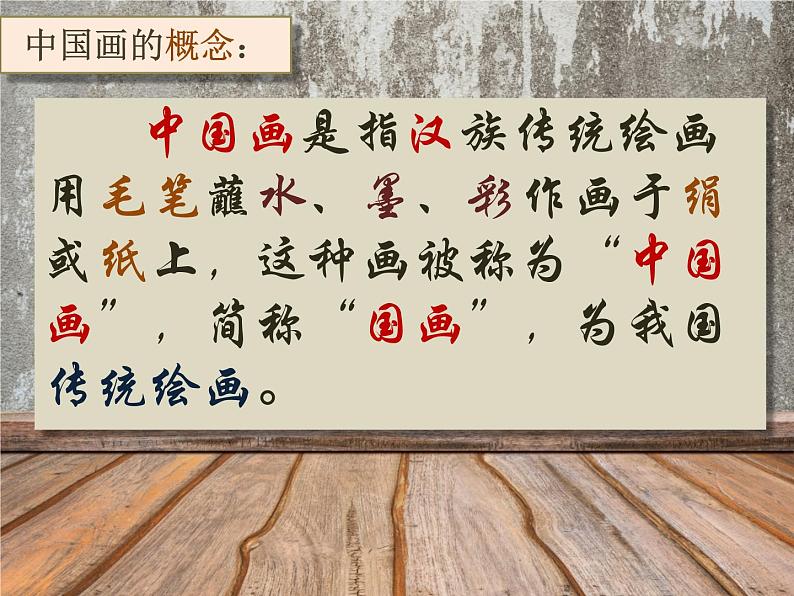 中国画的概念：
中国画是指汉族传统绘画
用毛笔蘸水、墨、彩作画于绢
或纸上，这种画被称为“中国
画”，简称“国画”，为我国
传统绘画。